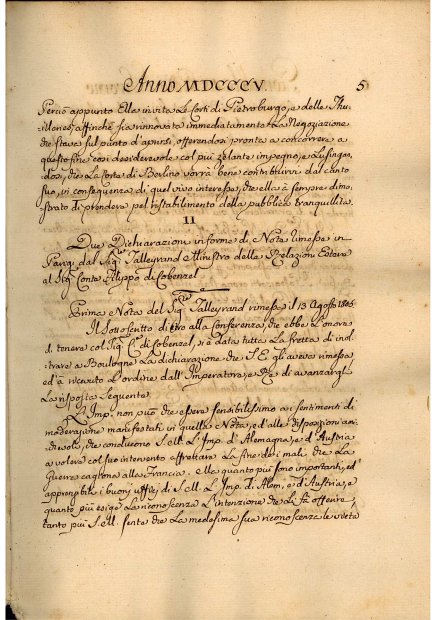 Anno MDCCCV. 5
Perciò appunto Ella invita le Corti di Pietroburgo, e delle Thu-
illeries, affinchè sia rinnovata immediatamente la Negoziazione
che stava sul punto d'aprirsi, offerendosi pronta a concorrere a
questo fine così desiderevole col più zelante impegno, e lusingan-
dosi, che la Corte di Berlino vorrà bene contribuire dal canto
suo, in conseguenza di quel vivo interesse, che ella à sempre dimo-
strato di prendere pel ristabilimento della pubblica tranquillità.
II
Due Dichiarazioni in forma di Nota rimesse in
Parigi dal Sig.r Talleyrand Ministro delle Relazioni Estere
al Sig. Conte Filippo di Cobenzel
Prima Nota del Sig.r Talleyrand rimessa il 13 Agosto 1805
Il Sottoscritto di alla conferenza, che ebbe l'onore
di tenere col Sig. C. di Cobenzel, si è data tutta la fretta di inol-
trare a Boulogne la dichiarazione che S. E. gli aveva rimessa,
ed à ricevuto l'ordine dall'Imperatore, e Rè di avanzargli
la risposta seguente.
L'Imp. non può che essere sensibilissimo ai sentimenti di
moderazione manifestati in quella Nota, ed alle disposizioni ami-
chevoli, che conducono S. M. L'Imp. d'Alemagna, e d'Austria
a voler col suo intervento affrettare la fine dei mali che la
Guerra cagiona alla Francia. Ma quanto più sono importanti, ed
apprezzabili i buoni uffizj di S. M. L'Imp. di Alem. e d'Austria, e
quanto più esige la riconoscenza l'intenzione che li fà offerire,
tanto più S. M. sente che la medesima sua riconoscenza le vieta